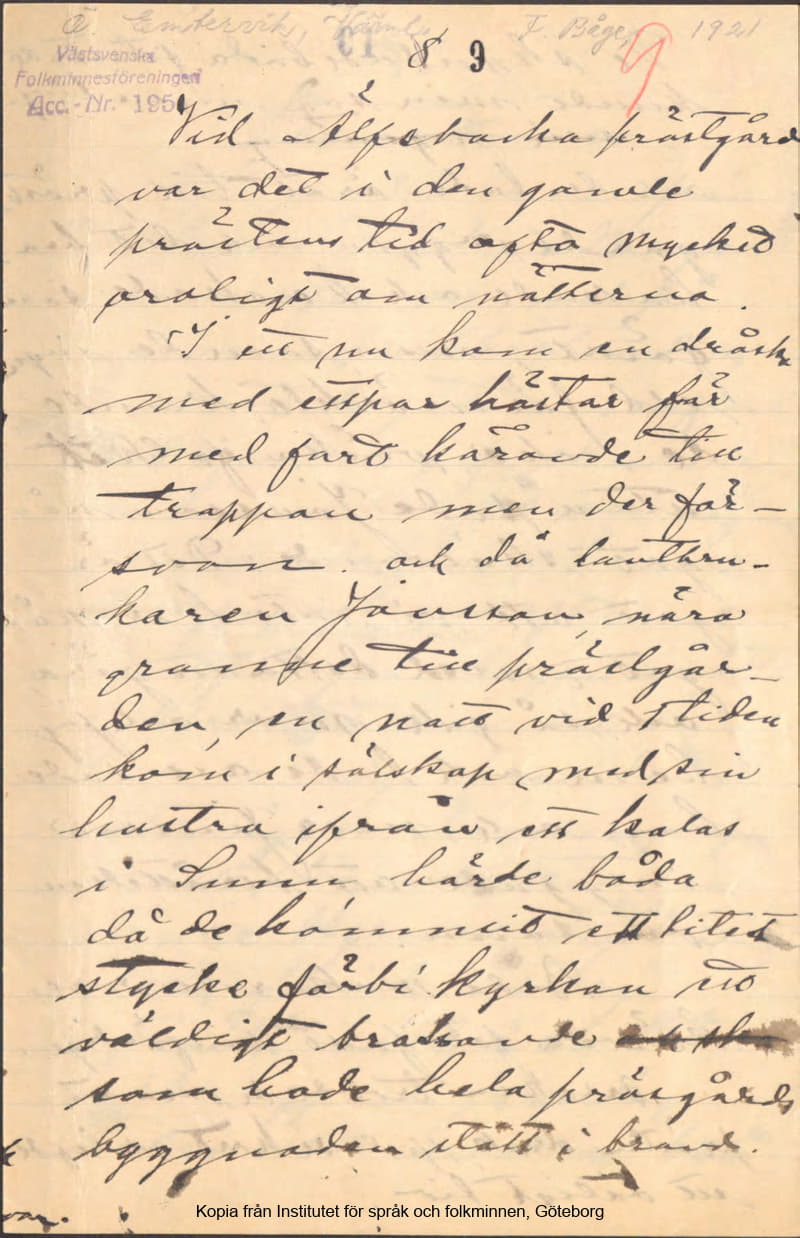 Ö. Emtervik, Värml. F. Båge, 1921
C1 8 9 9
Västsvenska
Folkminnesföreningen
Acc.-Nr. 195
Vid Älfsbacka prästgård
var det i den gamle
prästens tid ofta mycket
oroligt om nätterna.
I ett nu kom en dråsk
med ettpar hästar för
med fart körande till
trappan men der för-
svan. och då lantbru-
karen Jönsson, nära
granne till prästgår-
den, en natt vid 1 tiden
kom i sälskap med sin
hustra ifrån ett kalas
i Sunn, hörde båda
då de kommit ett litet
stycke förbi kyrkan ett
väldigt brakande
som hade hela präsgårds
byggnaden stått i brand.
Kopia från Institutet för språk och folkminnen, Göteborg